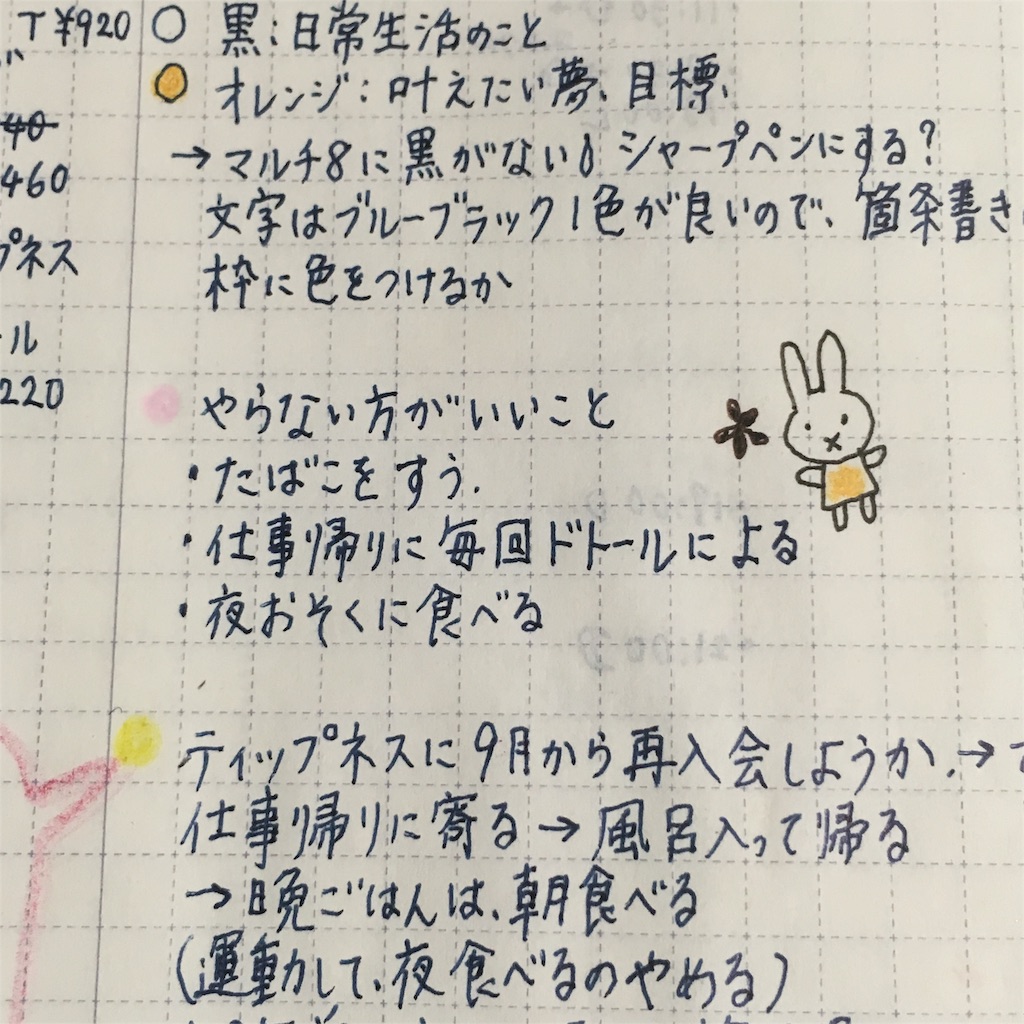 T ¥920
40
460
プネス
ール
220
黒：日常生活のこと
オレンジ：叶えたい夢、目標、
→マルチ8に黒がない シャープペンにする？
文字はブルーブラック1色が良いので、箇条書き
枠に色をつけるか
やらない方がいいこと
・たばこをすう.
・仕事帰りに毎回ドトールによる
・夜おそくに食べる
ティップネスに9月から再入会しようか.→
仕事帰りに寄る→風呂入って帰る
→晩ごはんは、朝食べる
(運動して、夜食べるのやめる)